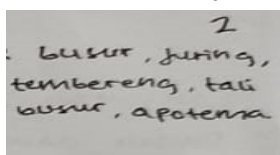 2
: busur, juring,
tembereng, tali
busur, apotema